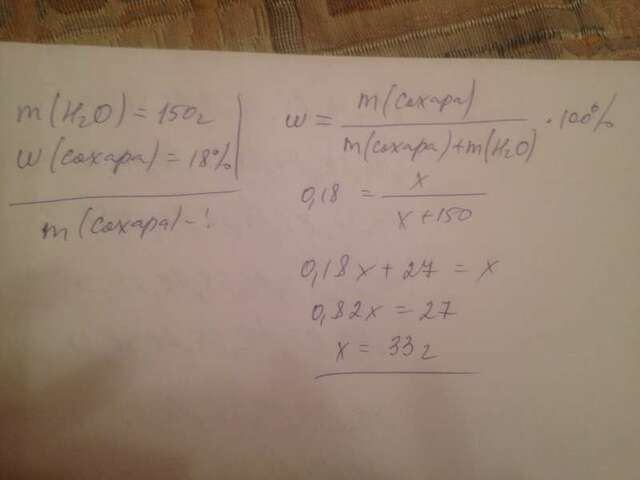 m(H₂O) = 150г
w(сахара) = 18%
m(сахара) - ?
w = m(сахара) / m(сахара) + m(H₂O) · 100%
0,18 = x / x + 150
0,18x + 27 = x
0,82x = 27
x = 33 г